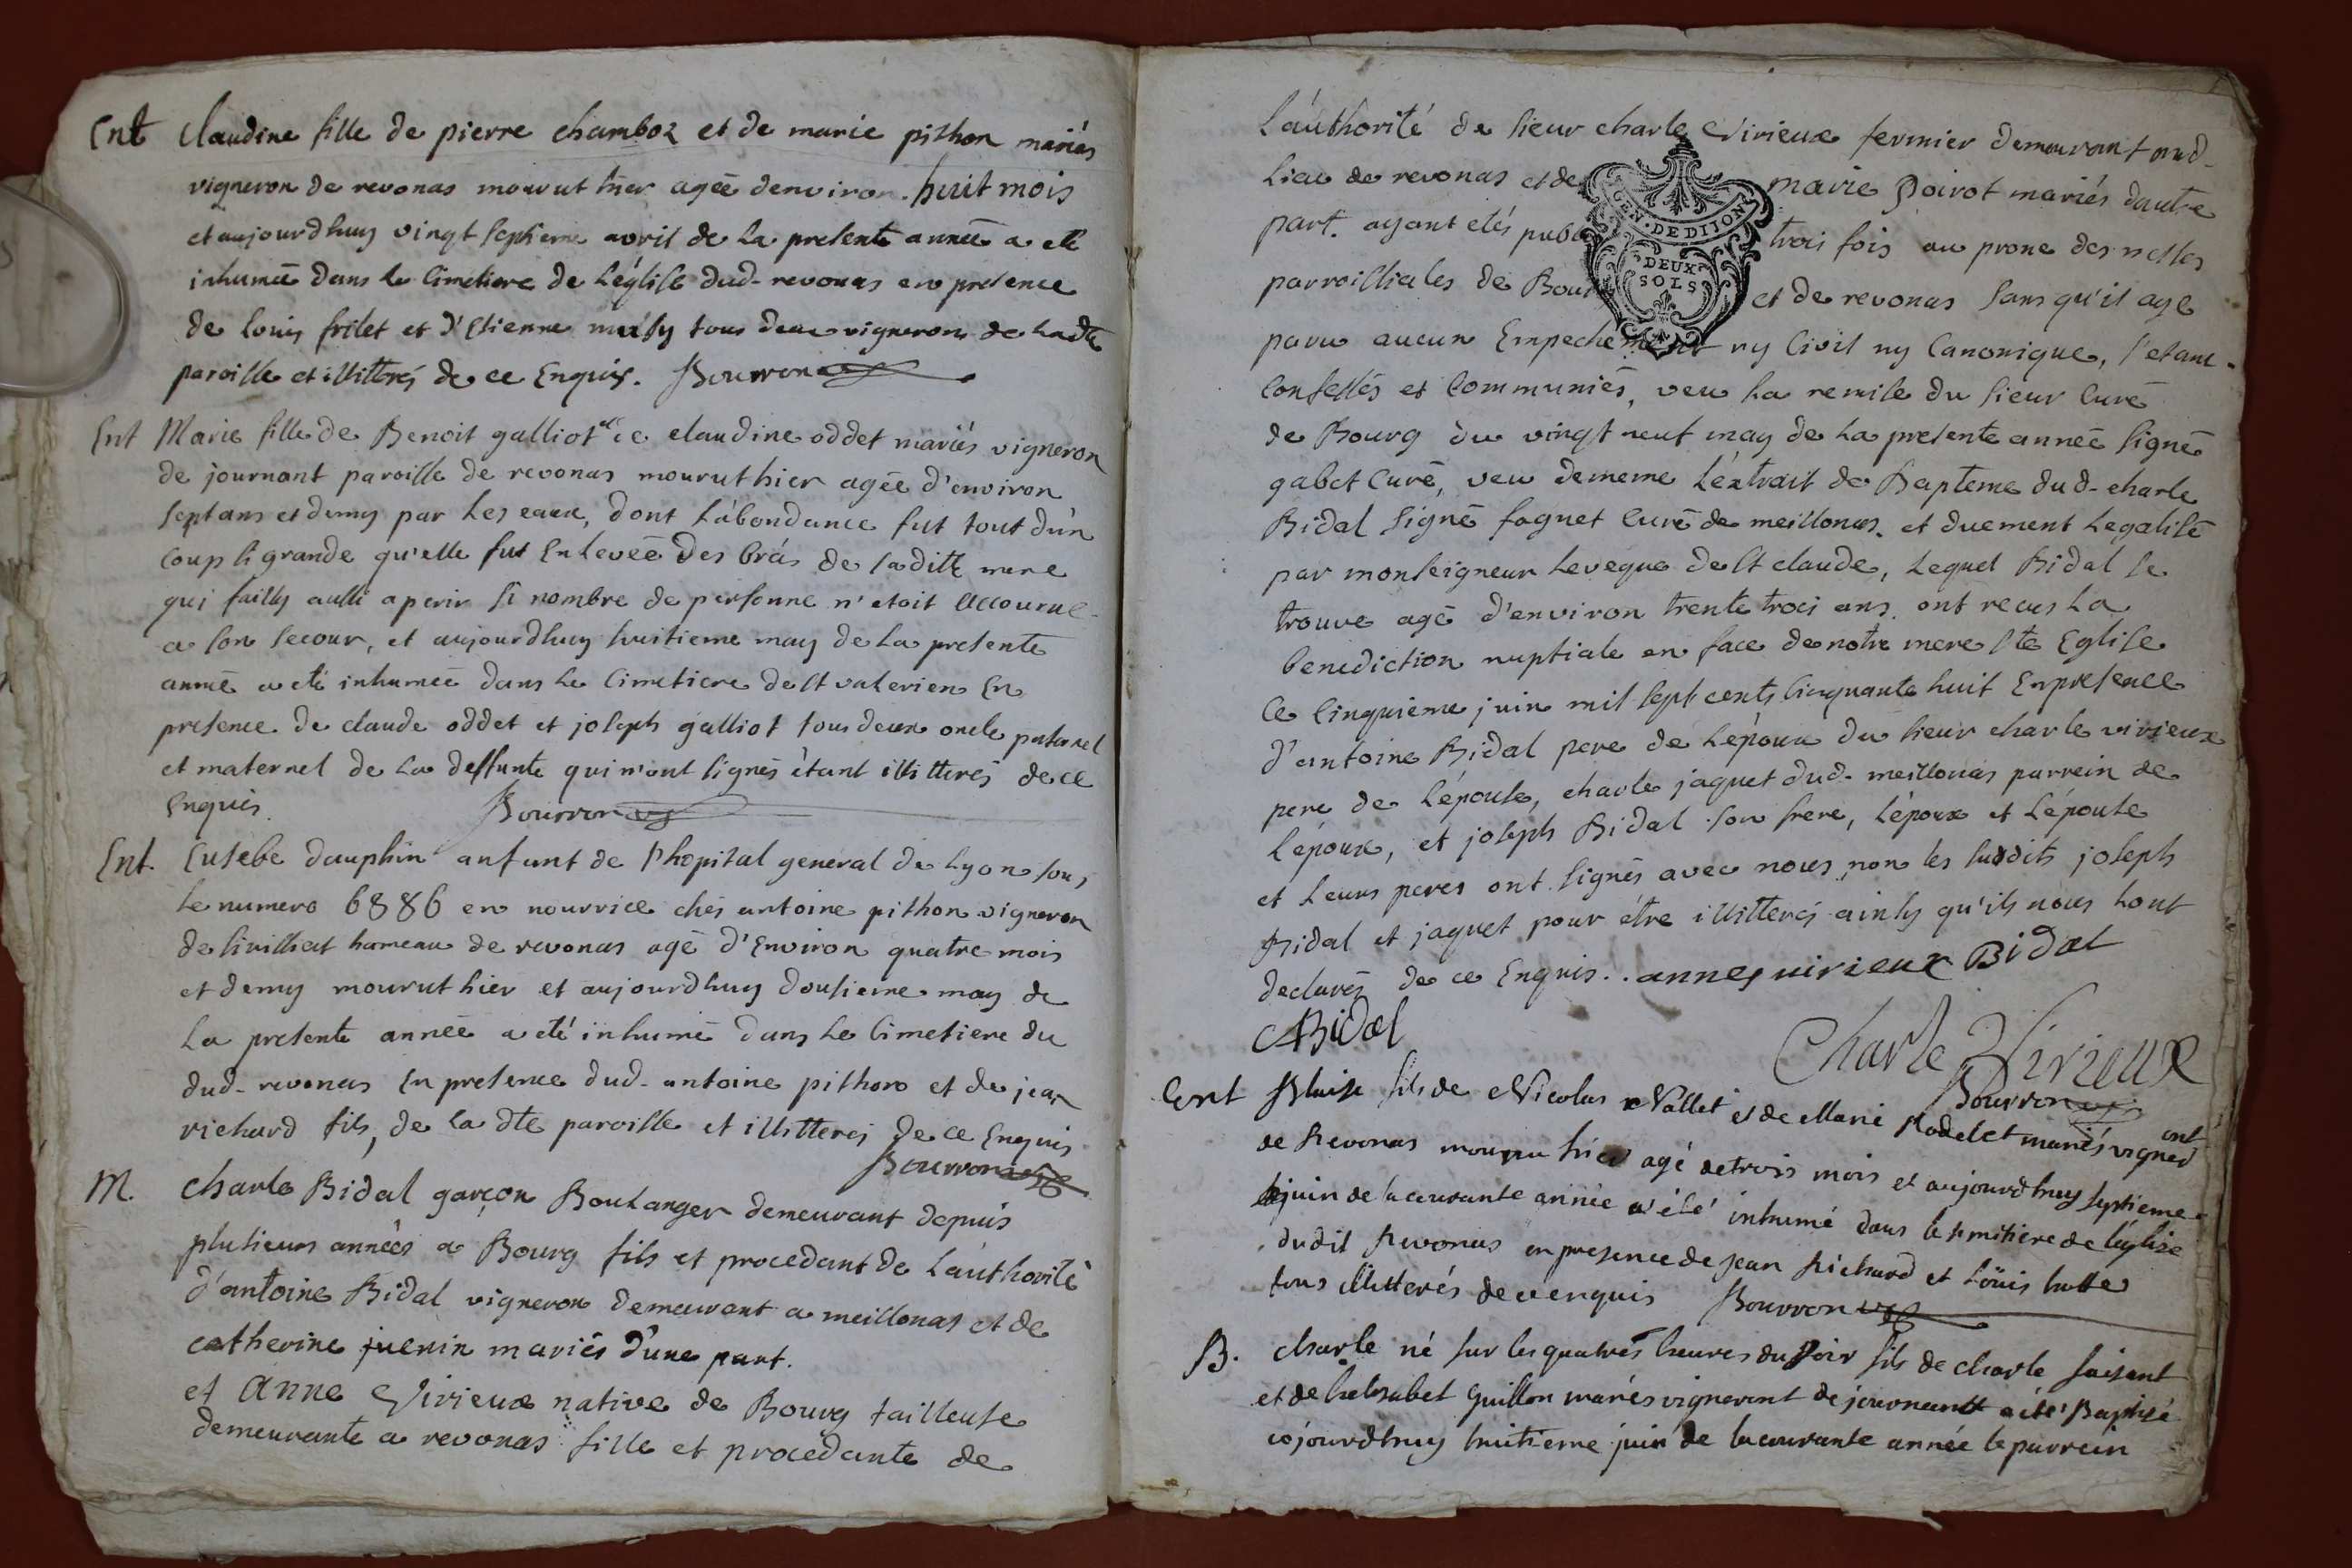 Ent Claudine fille de pierre chamboz et de marie pithon mariés
vigneron de revonas mourut hier agée denviron huit mois
et aujourdhuy vingt septieme avril de la presente année a été
inhumée dans le Cimetiere de Léglise dud- revonas en presence
de Louis frilet et d'Etienne tous deux vignerons de Ladte
paroisse et illitterés de ce Enquis. Bourron
Ent Marie fille de Benoit galliot et de claudine oddet mariés vigneron
de journant paroisse de revonas mourut hier agée d'environ
sept ans et demy par Les eaux, dont Lábondance fut tout d'un
coup si grande qu'elle fut Enlevée des brás de saditte mere
qui failly aussi a perir si nombre de personne n'etoit accourue
a son secour, et aujourdhuy huitieme may de La presente
année a eté inhumée dans Le Cimetiere de St valerien En
presence de claude oddet et joseph galliot tous deux oncle paternel
et maternel de La deffunte qui n'ont signés étant illitterés de ce
Enquis. Bourron
Ent. Eusebe dauphin anfant de l'hopital general de Lyon sous
Le numero 6886 en nourrice chés antoine pithon vigneron
de Sivilliat hameau de revonas agé d'Environ quatre mois
et demy mourut hier et aujourdhuy dousieme may de
La presente année a eté inhumé dans Le Cimetiere du
dud- revonas En presence dud- antoine pithon et de jean
richard fils, de La dte paroisse et illitterés de ce Enquis
Bourron
M. charle Bidal garçon Boulanger demeurant depuis
plusieurs années a Bourg fils et procedant de Láuthorité
d'antoine Bidal vigneron demeurant a meillonas et de
catherine juenin mariés d'une part.
et Anne Virieux native de Bourg tailleuse
demeurante a revonas fille et procedante de
Láuthorité de sieur charle Virieux fermier demeurant aud-
Lieu de revonas et de marie Poirot mariés dautre
GEN. DE DIJON
DEUX
SOLS
part. ayant etés trois fois au prone des messes
parroissiales de et de revonas sans qu'il aye
paru aucun Empechement ny Civil ny Canonique, s'etant
Confessés et Communiés, veu La remise du sieur Curé
de Bourg du vingt neuf may de La presente année signé
gabet Curé, veu dememe Léxtrait de Bapteme dud- charle
Bidal signé faguet Curé de meillonas. et duement Legalisé
par monseigneur Leveque de St claude, Lequel Bidal se
trouve agé d'environ trente trois ans. ont recus La
benediction nuptiale en face de notre mere Ste Eglise
Ce Cinquieme juin mil sept cents Cinquante huit En presence
d'antoine Bidal pere de Lépoux du sieur charle virieux
pere de Lépouse, charle jaquet dud- meillonas parrein de
Lépoux, et joseph Bidal son frere, Lépoux et Lépouse
et Leurs peres ont signés avec nous non les susdits joseph
Bidal et jaquet pour étre illitterés ainsy qu'ils nous Lont
declarés de ce Enquis. annes virieux Bidal
ABidal
Charle Virieux
Bourron
Ent Blaise fils de Nicolas Nallet et de Marie Rodelet mariés vigneront
de Revonas mouru hier agé de trois mois et aujourdhuy septieme
juin de la courante année a été inhumé dans le simitiere de l'église
dudit Revonas en presence de jean Richard et Loüis
tous illitterés de ce enquis Bourron
B. charle né sur les quatres heures du soir fils de charle
et de Guillon mariés vigneront de journant a été Baptisé
aujourdhuy huitieme juin de la courante année le parrein